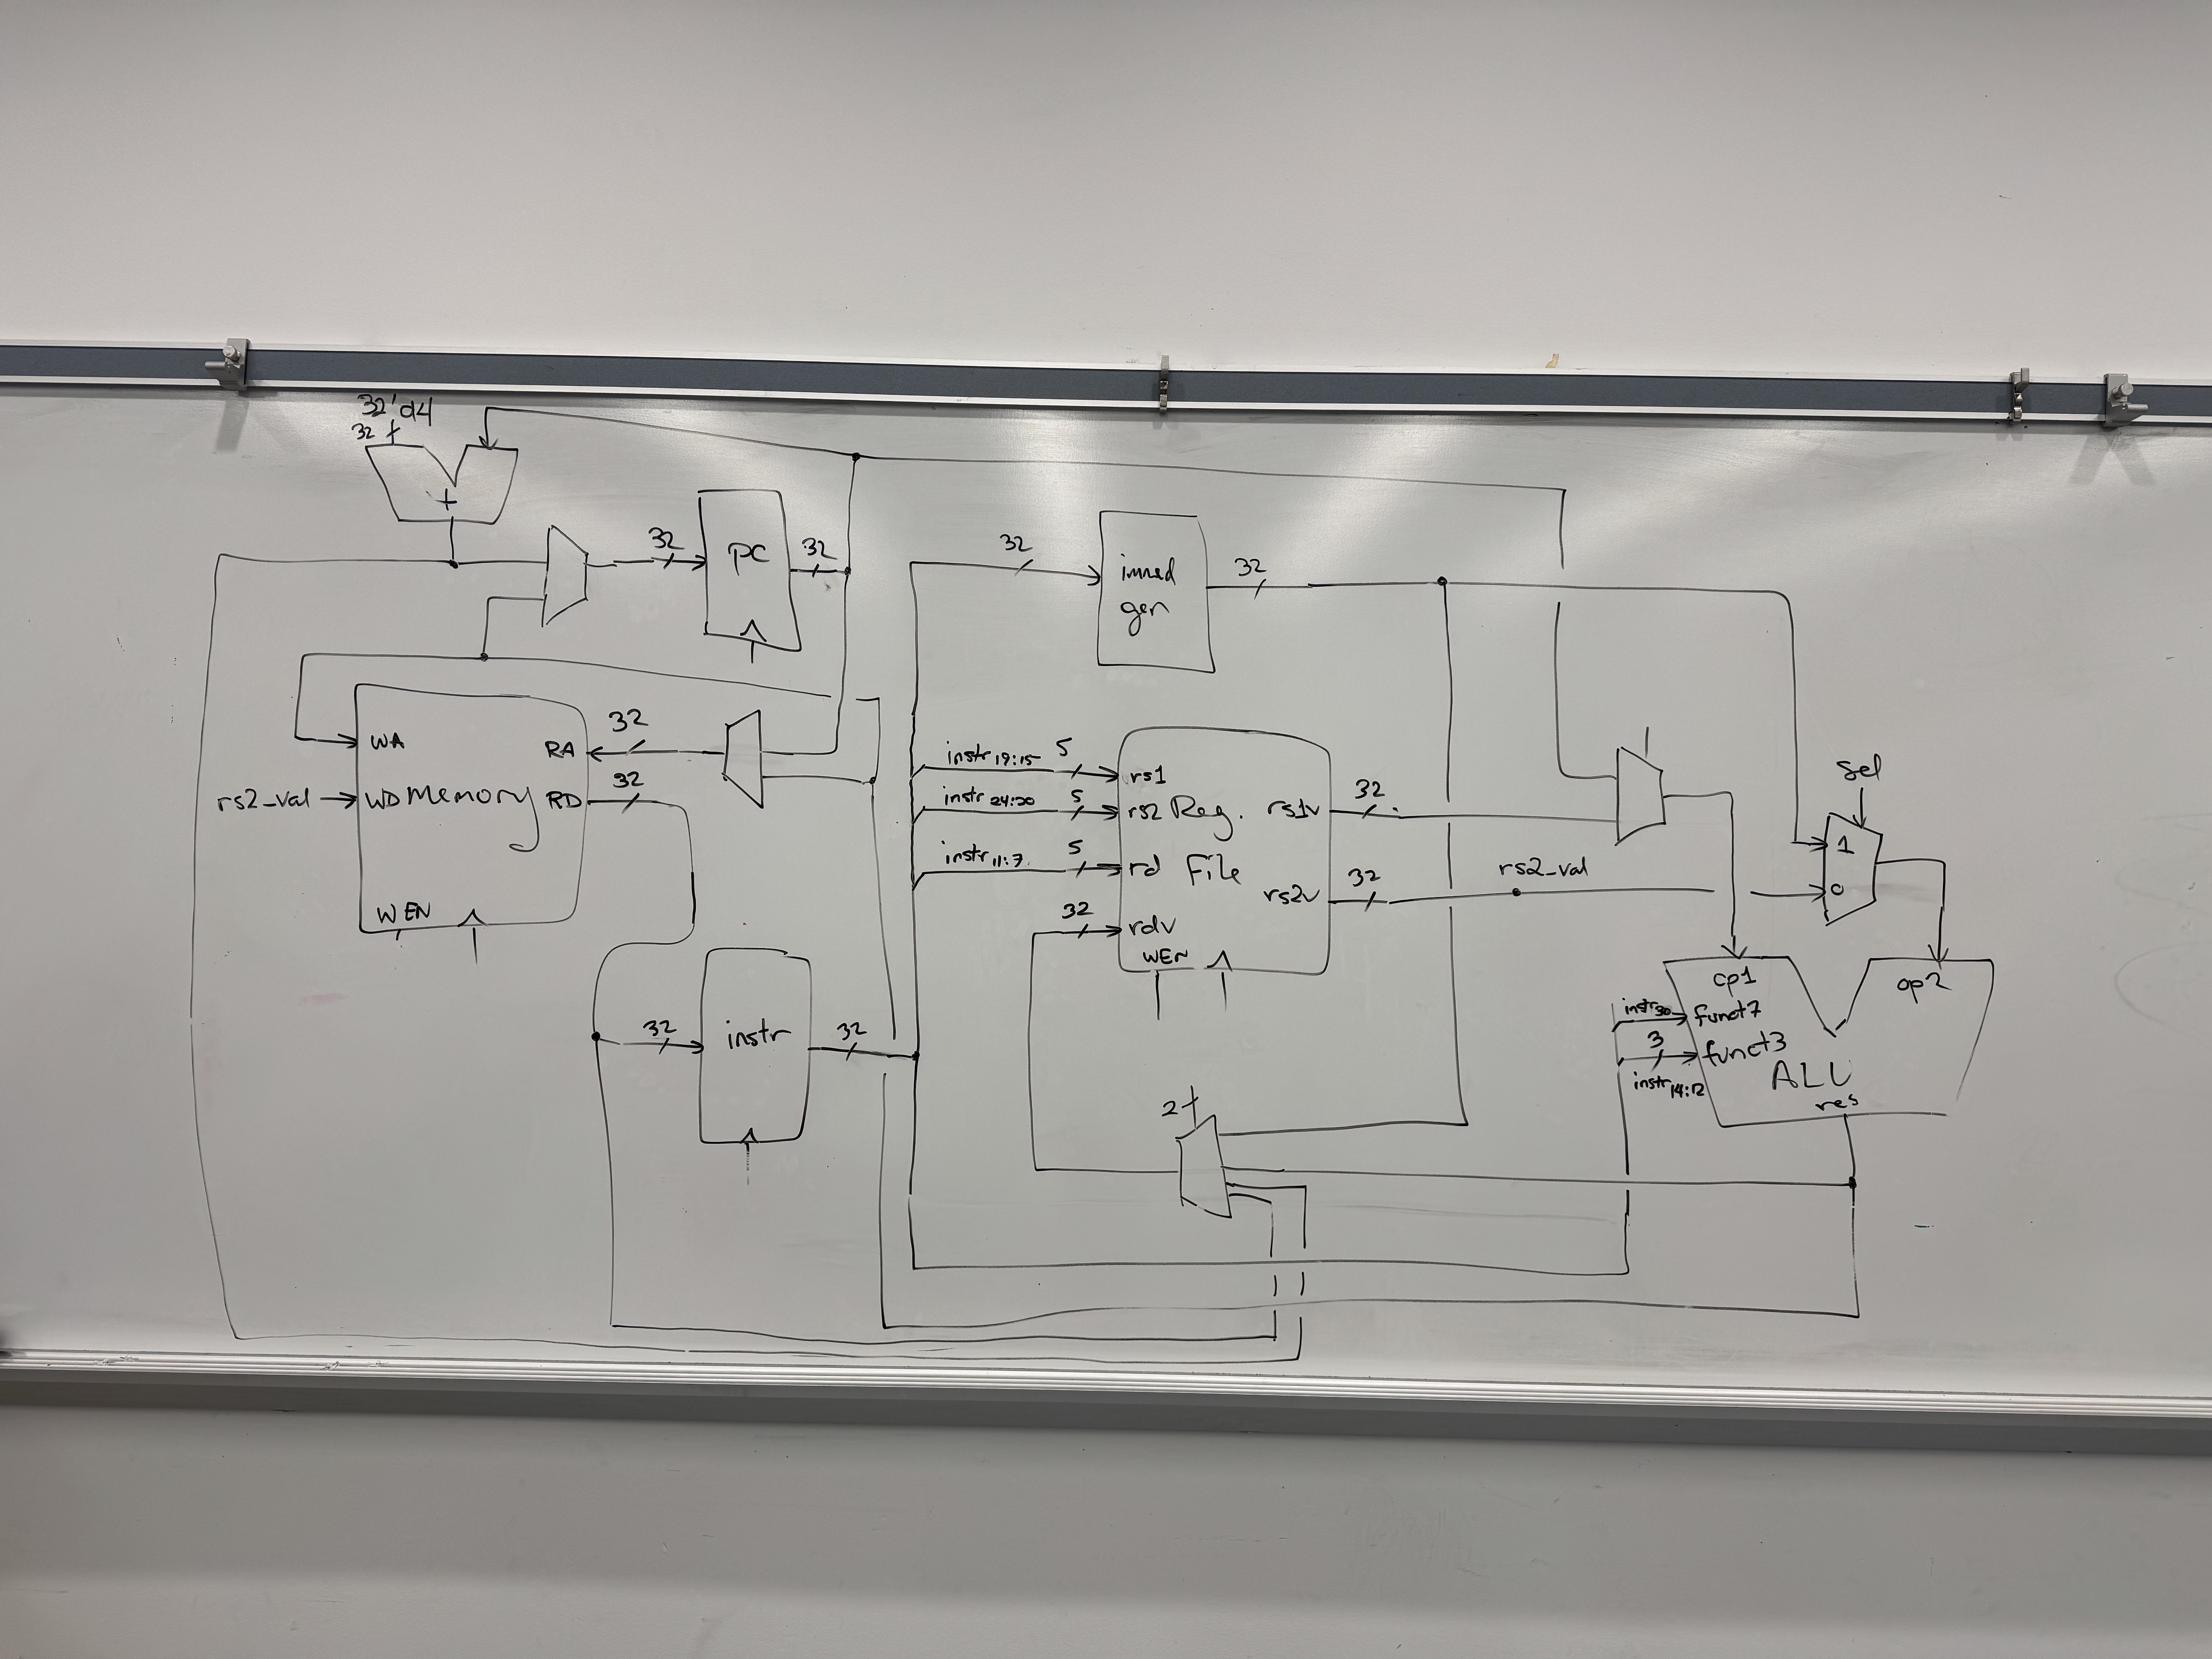 32'd4
32
+
32
PC
32
32
immed
gen
32
WA
RA
32
rs2_val
WD Memory
RD
32
WEN
instr 19:15
5
rs1
instr 24:20
5
rs2 Reg.
rs1v
32
instr 11:7
5
rd File
rs2v
32
rs2_val
32
rdv
WEN
sel
1
0
32
instr
32
op1
op2
instr30
funct7
3
funct3
instr14:12
ALU
res
2